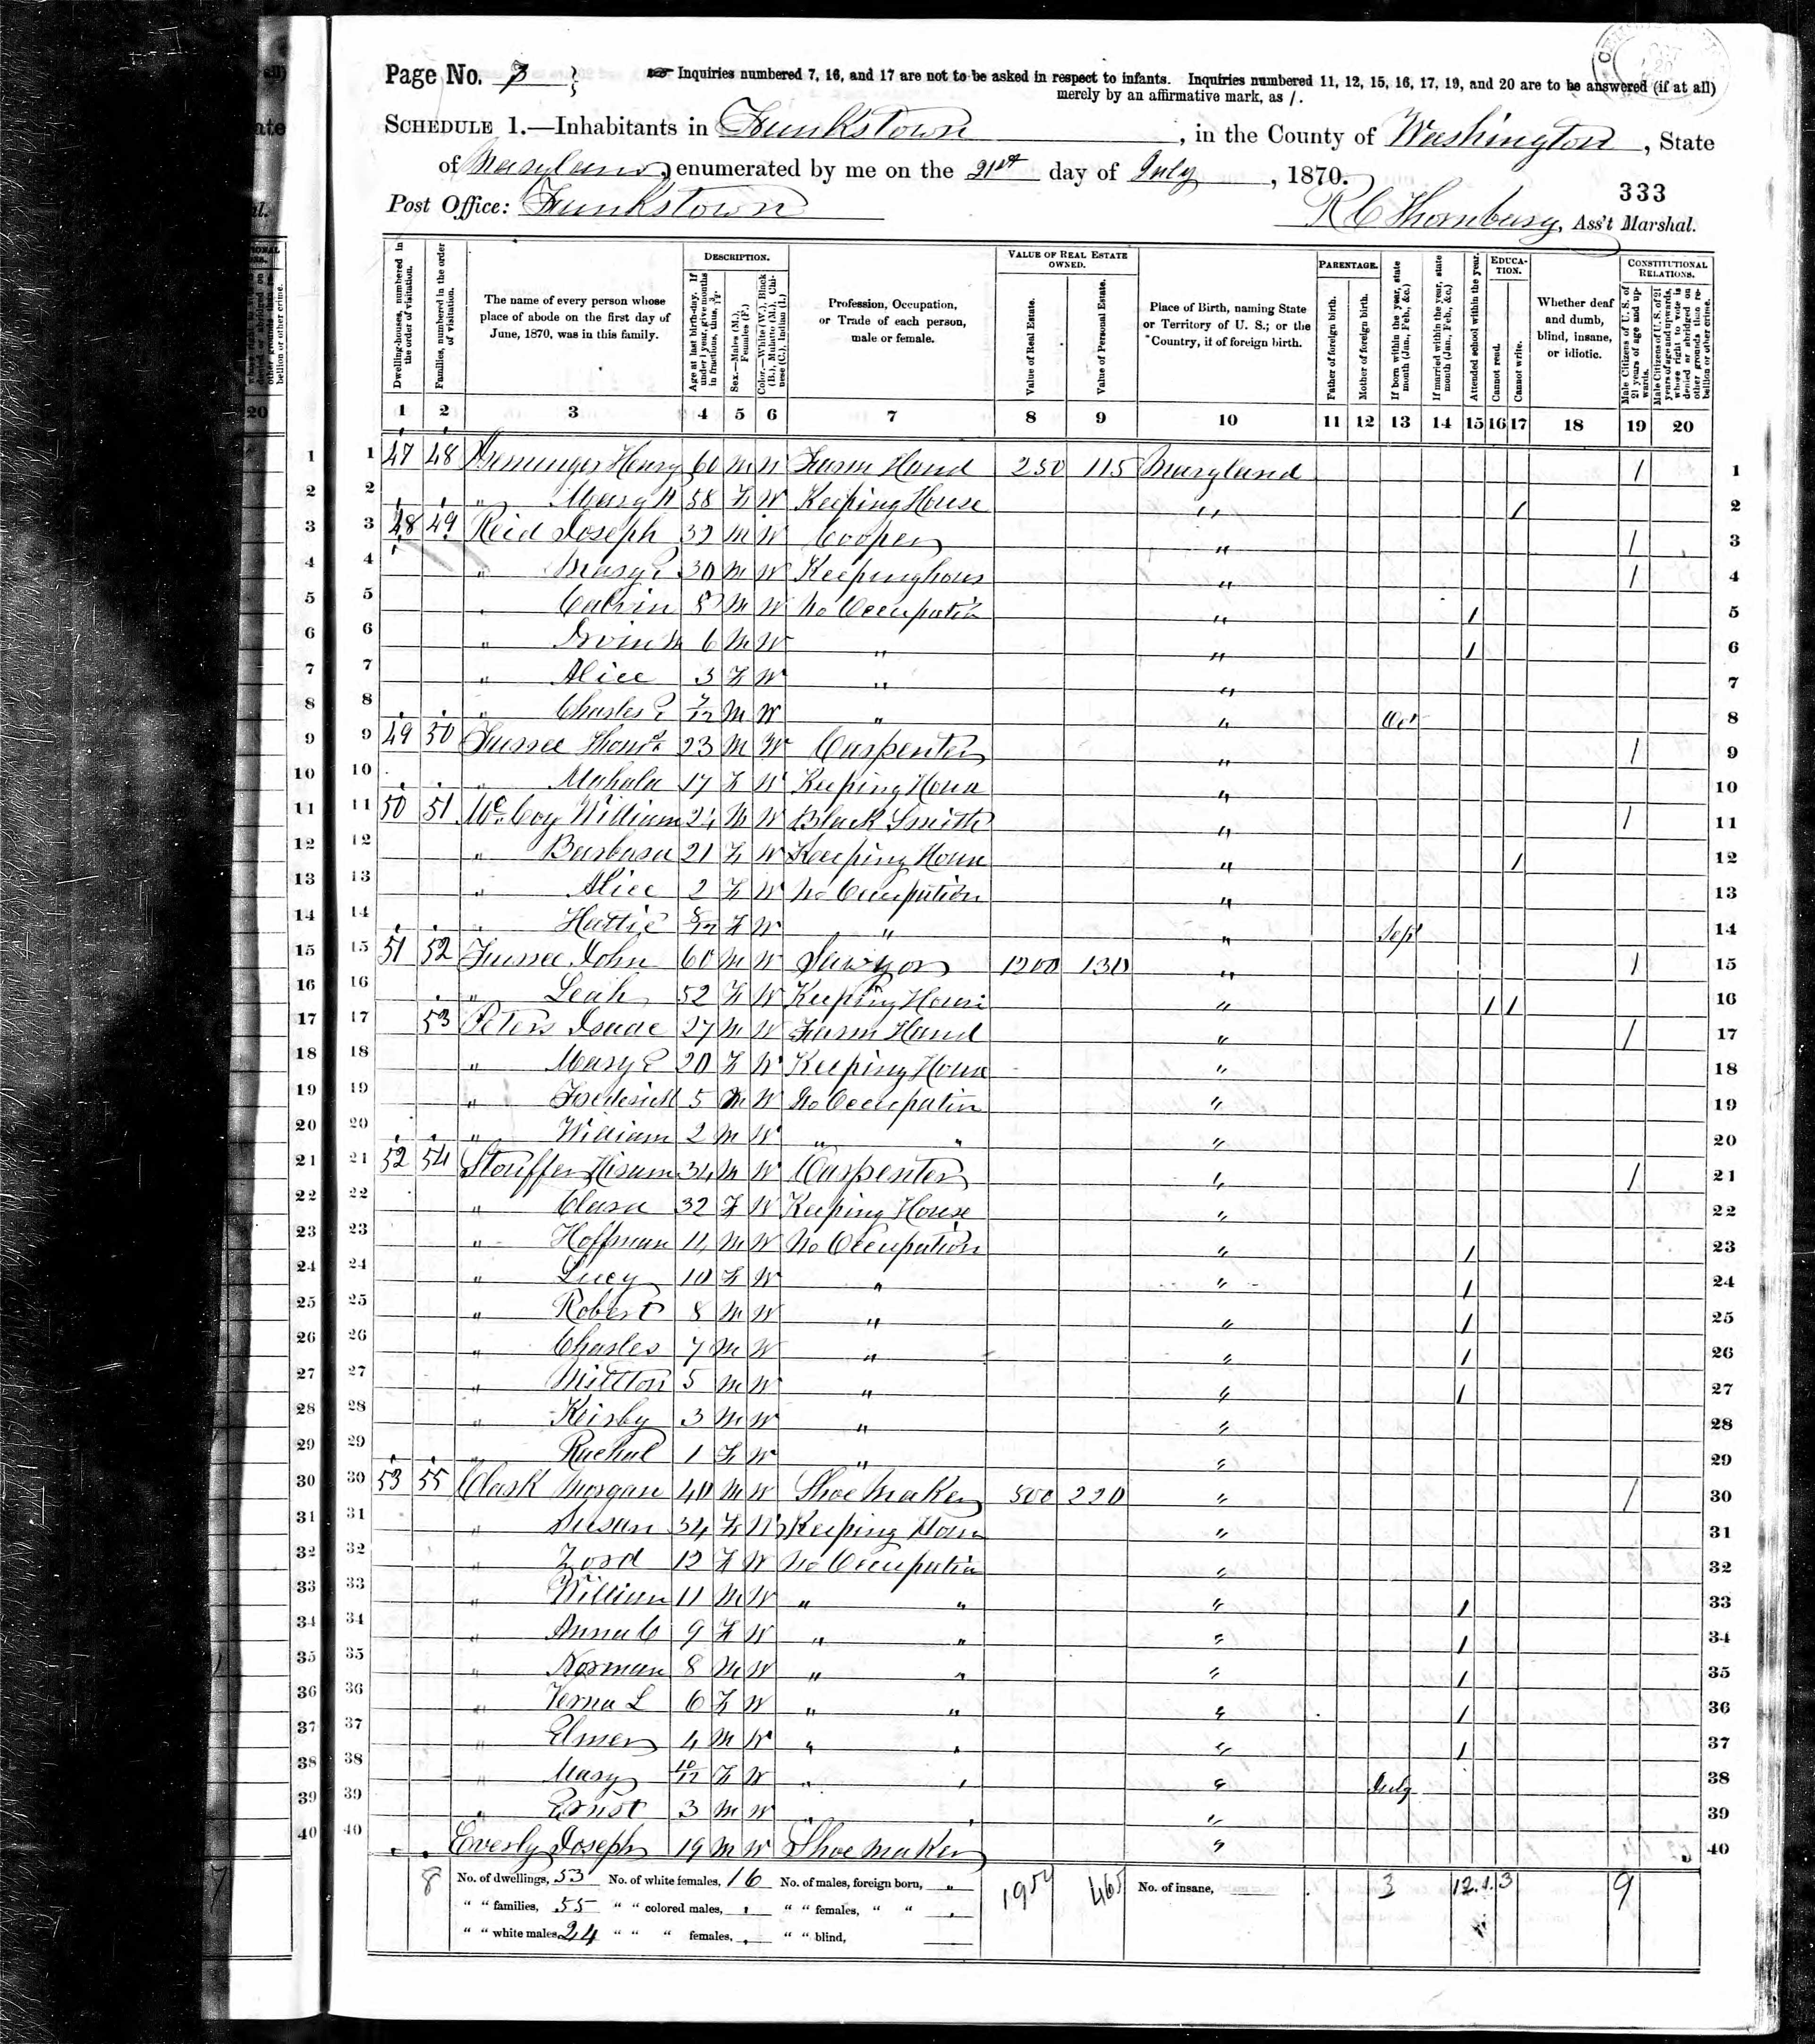 Page No. 7
Inquiries numbered 7, 16, and 17 are not to be asked in respect to infants. Inquiries numbered 11, 12, 15, 16, 17, 19, and 20 are to be answered (if at all)
merely by an affirmative mark, as /.
SCHEDULE 1.—Inhabitants in Funkstown, in the County of Washington, State
of Maryland, enumerated by me on the 21st day of July, 1870.
333
Post Office: Funkstown
R C Thornburg, Ass't Marshal.
Dwelling-houses, numbered in the order of visitation.
Families, numbered in the order of visitation.
The name of every person whose place of abode on the first day of June, 1870, was in this family.
DESCRIPTION.
Age at last birth-day. If under 1 year, give months in fractions, thus, 3/12.
Sex.—Males (M.), Females (F.)
Color.—White (W.), Black (B.), Mulatto (M.), Chinese (C.), Indian (I.)
Profession, Occupation, or Trade of each person, male or female.
VALUE OF REAL ESTATE OWNED.
Value of Real Estate.
Value of Personal Estate.
Place of Birth, naming State or Territory of U. S.; or the Country, if of foreign birth.
PARENTAGE.
Father of foreign birth.
Mother of foreign birth.
If born within the year, state month (Jan., Feb., &c.)
If married within the year, state month (Jan., Feb., &c.)
Attended school within the year.
EDUCATION.
Cannot read.
Cannot write.
Whether deaf and dumb, blind, insane, or idiotic.
CONSTITUTIONAL RELATIONS.
Male Citizens of U. S. of 21 years of age and upwards.
Male Citizens of U. S. of 21 years of age and upwards, whose right to vote is denied or abridged on other grounds than rebellion or other crime.
1 2 3 4 5 6 7 8 9 10 11 12 13 14 15 16 17 18 19 20
1 47 48 Henry 60 M W Farm Hand 250 115 Maryland / 1
2 " Mary A 58 F W Keeping House " / 2
3 48 49 Reid Joseph 32 M W Cooper " / 3
4 " Mary E 30 M W Keeping hous " / 4
5 " Calvin 8 M W No Occupatin " / 5
6 " Irvin M 6 M W " " / 6
7 " Alice 3 F W " " 7
8 " Charles E 7/12 M W " " Oct 8
9 49 50 Thos 23 M W Carpenter " / 9
10 " Mahala 17 F W Keeping House " 10
11 50 51 McCoy William 24 M W Black Smith " / 11
12 " Barbara 21 F W Keeping House " / 12
13 " Alice 2 F W No Occupation " 13
14 " Hattie 8/12 F W " " Sept 14
15 51 52 John 60 M W Sawyor 1200 130 " / 15
16 " Leah 52 F W Keeping House " / / 16
17 53 Peters Isaac 27 M W Farm Hand " / 17
18 " Mary E 20 F W Keeping House " 18
19 " Frederick 5 M W No Occupatin " 19
20 " William 2 M W " " " 20
21 52 54 Stouffer Hiram 34 M W Carpenter " / 21
22 " Clara 32 F W Keeping House " 22
23 " Hoffman 14 M W No Occupation " / 23
24 " Lucy 10 F W " " / 24
25 " Robert 8 M W " " / 25
26 " Charles 7 M W " " / 26
27 " Millton 5 M W " " / 27
28 " Keisby 3 M W " " 28
29 " Rachul 1 F W " " 29
30 53 55 Clark Morgan 40 M W Shoe Maker 500 220 " / 30
31 " Susan 34 F W Keeping Hous " 31
32 " 12 F W No Occupatin " 32
33 " William 11 M W " " " / 33
34 " Anna C 9 F W " " " / 34
35 " Norman 8 M W " " " / 35
36 " Verna L 6 F W " " " / 36
37 " Elmer 4 M W " " " / 37
38 " Mary 10/12 F W " " " July 38
39 " Ernst 3 M W " " " 39
40 Everly Joseph 19 M W Shoe Maker " 40
8 No. of dwellings, 53 No. of white females, 16 No. of males, foreign born, " 1950 465 No. of insane, 3 12 1 3 9
" " families, 55 " " colored males, " " females, " "
" " white males, 24 " " " females, " " blind,